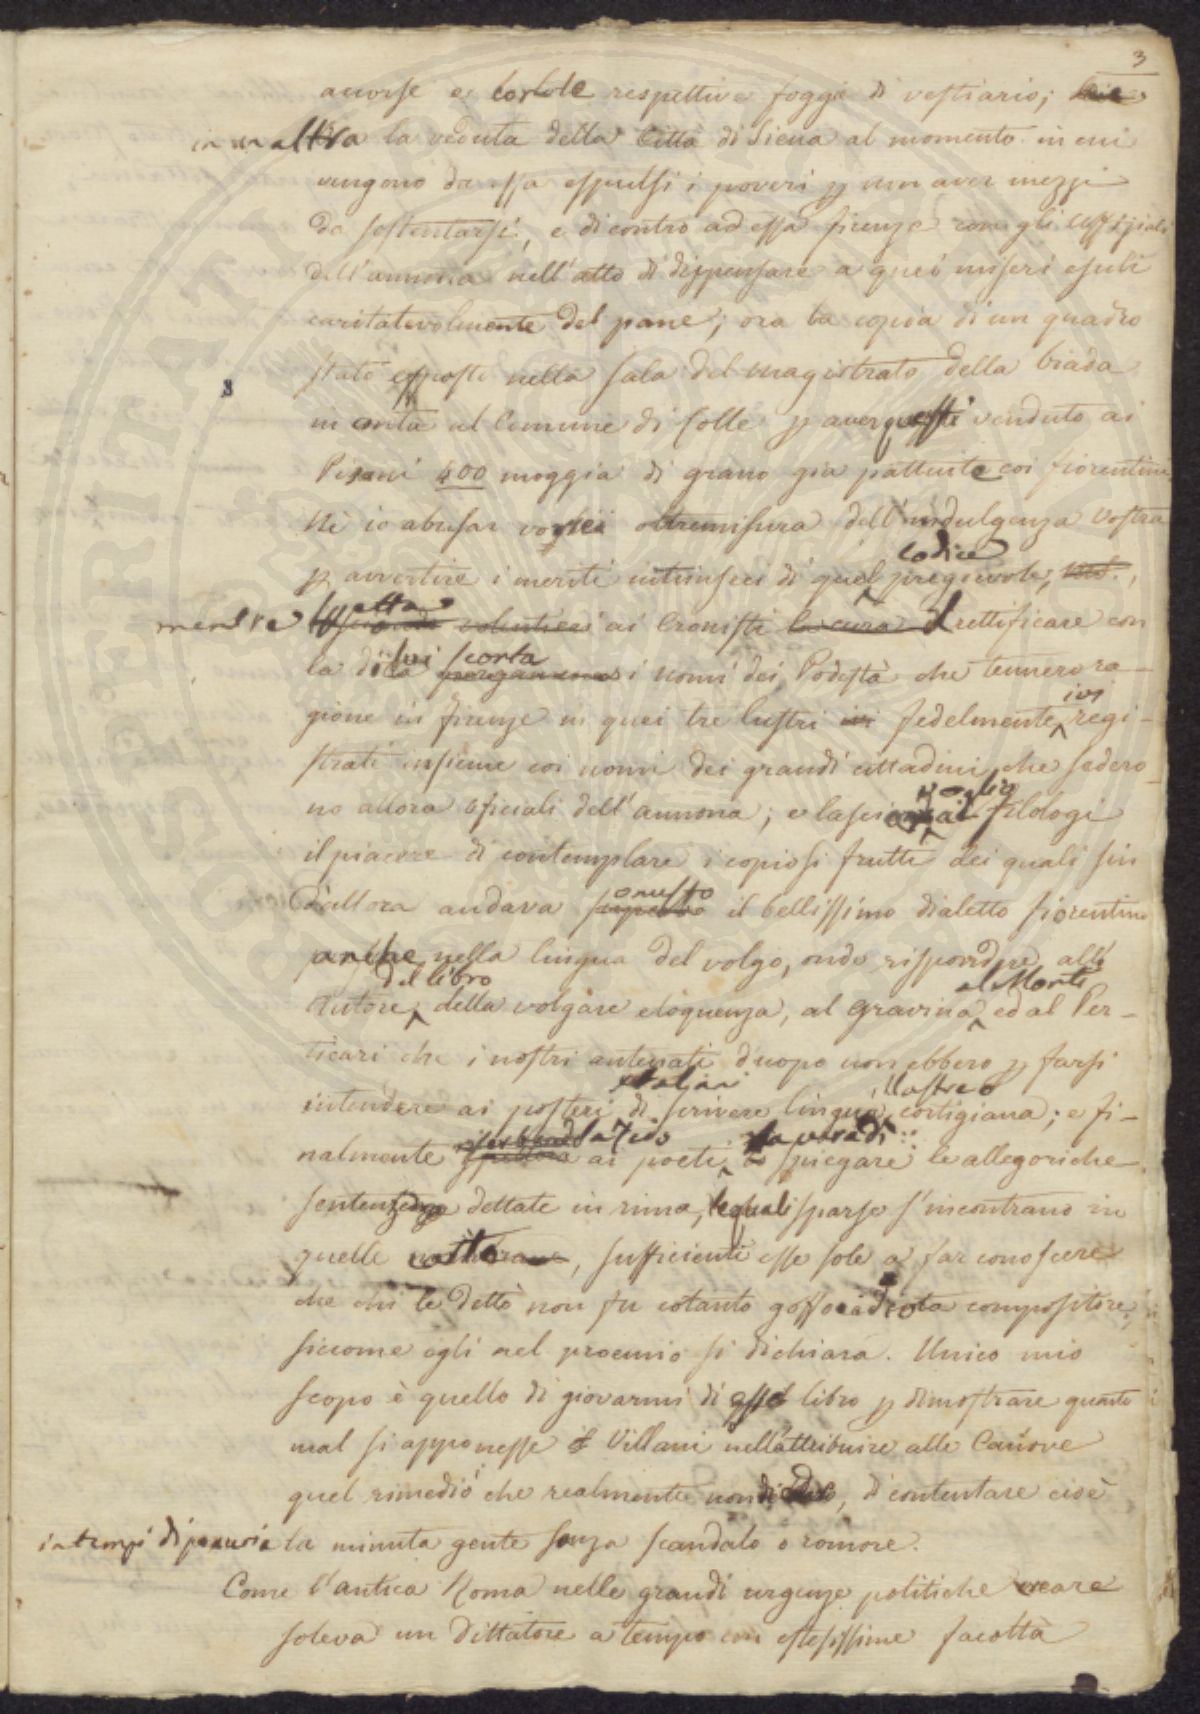 3
accorse e colle respettive foggie di vestiario;
in un altra la veduta della Città di Siena al momento in cui
vengono da essa espulsi i poveri p non aver mezzi
da sostentarsi, e di contro ad essa Firenze con gli uffiziali
dell'annona nell'atto di dispensare a quei miseri esuli
caritatevolmente del pane; ora la copia di un quadro
stato esposto nella sala del magistrato della biada
in onta al Comune di Colle p aver questi venduto ai
Pisani 400 moggia di grano già pattuite coi fiorentini
Nè io abusar vorrei oltremisura dell'indulgenza vostra
codice
p avvertire i meriti intrinseci di quel pregievole,
mentre spetta ai Cronisti rettificare con
la di lui scorta i nomi dei Podestà che tennero ra-
ivi
gione in Firenze in quei tre lustri fedelmente regi-
strati insieme coi nomi dei grandi cittadini che sedero-
voglio
no allora oficiali dell'annona; e lasciar ai filologi
il piacere di contemplare i copiosi frutti dei quali sin
onusto
d'allora andava il bellissimo dialetto fiorentino
anche nella lingua del volgo, onde rispondere all'
del libro al Monti
Autore della volgare eloquenza, al Gravina ed al Per-
ticari che i nostri antenati d'uopo non ebbero p farsi
italiani illustre o
intendere ai posteri di scrivere lingua cortigiana; e fi-
la vera di
nalmente ai poeti spiegare le allegoriche
sentenze dettate in rima, le quali sparse s'incontrano in
quelle , sufficienti esse sole a far conoscere
che chi le dettò non fu cotanto goffo e idiota compositore,
siccome egli nel proemio si dichiara. Unico mio
scopo è quello di giovarmi di esso libro p dimostrare quanto
mal si apponesse il Villani nell'attribuire alle Canove
quel rimedio che realmente non , di contentare cioè
in tempi di penuria la minuta gente senza scandalo o romore.
Come l'antica Roma nelle grandi urgenze politiche creare
soleva un Dittatore a tempo con estesissime facoltà